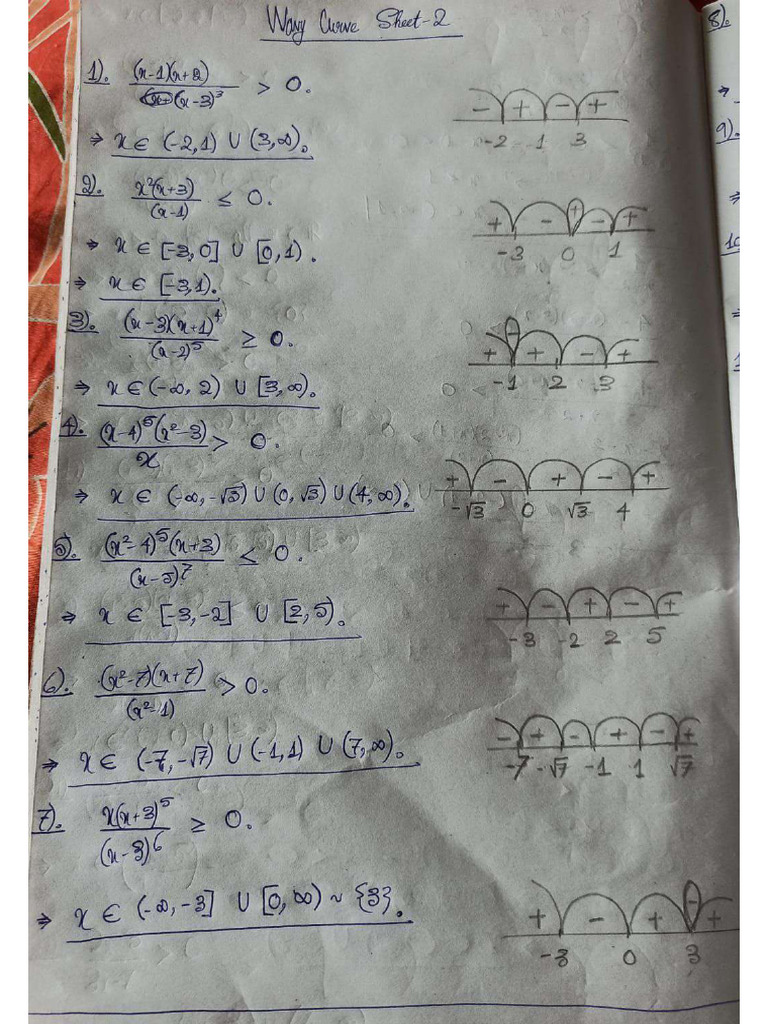 Wavy Curve Sheet-2
1). (x-1)(x+2) / (x-3)³ > 0.
- + - +
-2 1 3
⇒ x ∈ (-2,1) ∪ (3,∞).
2). x²(x+3) / (x-1) ≤ 0.
+ - + - +
-3 0 1
⇒ x ∈ [-3,0] ∪ [0,1).
⇒ x ∈ [-3,1).
3). (x-3)(x+1)⁴ / (x-2)⁵ ≥ 0.
+ - + - +
-1 2 3
⇒ x ∈ (-∞, 2) ∪ [3,∞).
4). (x-4)⁵(x²-3) / x > 0.
+ - + - +
-√3 0 √3 4
⇒ x ∈ (-∞,-√3) ∪ (0,√3) ∪ (4,∞).
5). (x²-4)⁵(x+3) / (x-5)⁷ ≤ 0.
+ - + - +
-3 -2 2 5
⇒ x ∈ [-3,-2] ∪ [2,5).
6). (x²-7)(x+7) / (x²-1) > 0.
- + - + - +
-7 -√7 -1 1 √7
⇒ x ∈ (-7,-√7) ∪ (-1,1) ∪ (7,∞).
7). x(x+3)⁵ / (x-3)⁶ ≥ 0.
+ - + - +
-3 0 3
⇒ x ∈ (-∞,-3] ∪ [0,∞) ~ {3}.
8).
⇒
9).
⇒
10
⇒
1